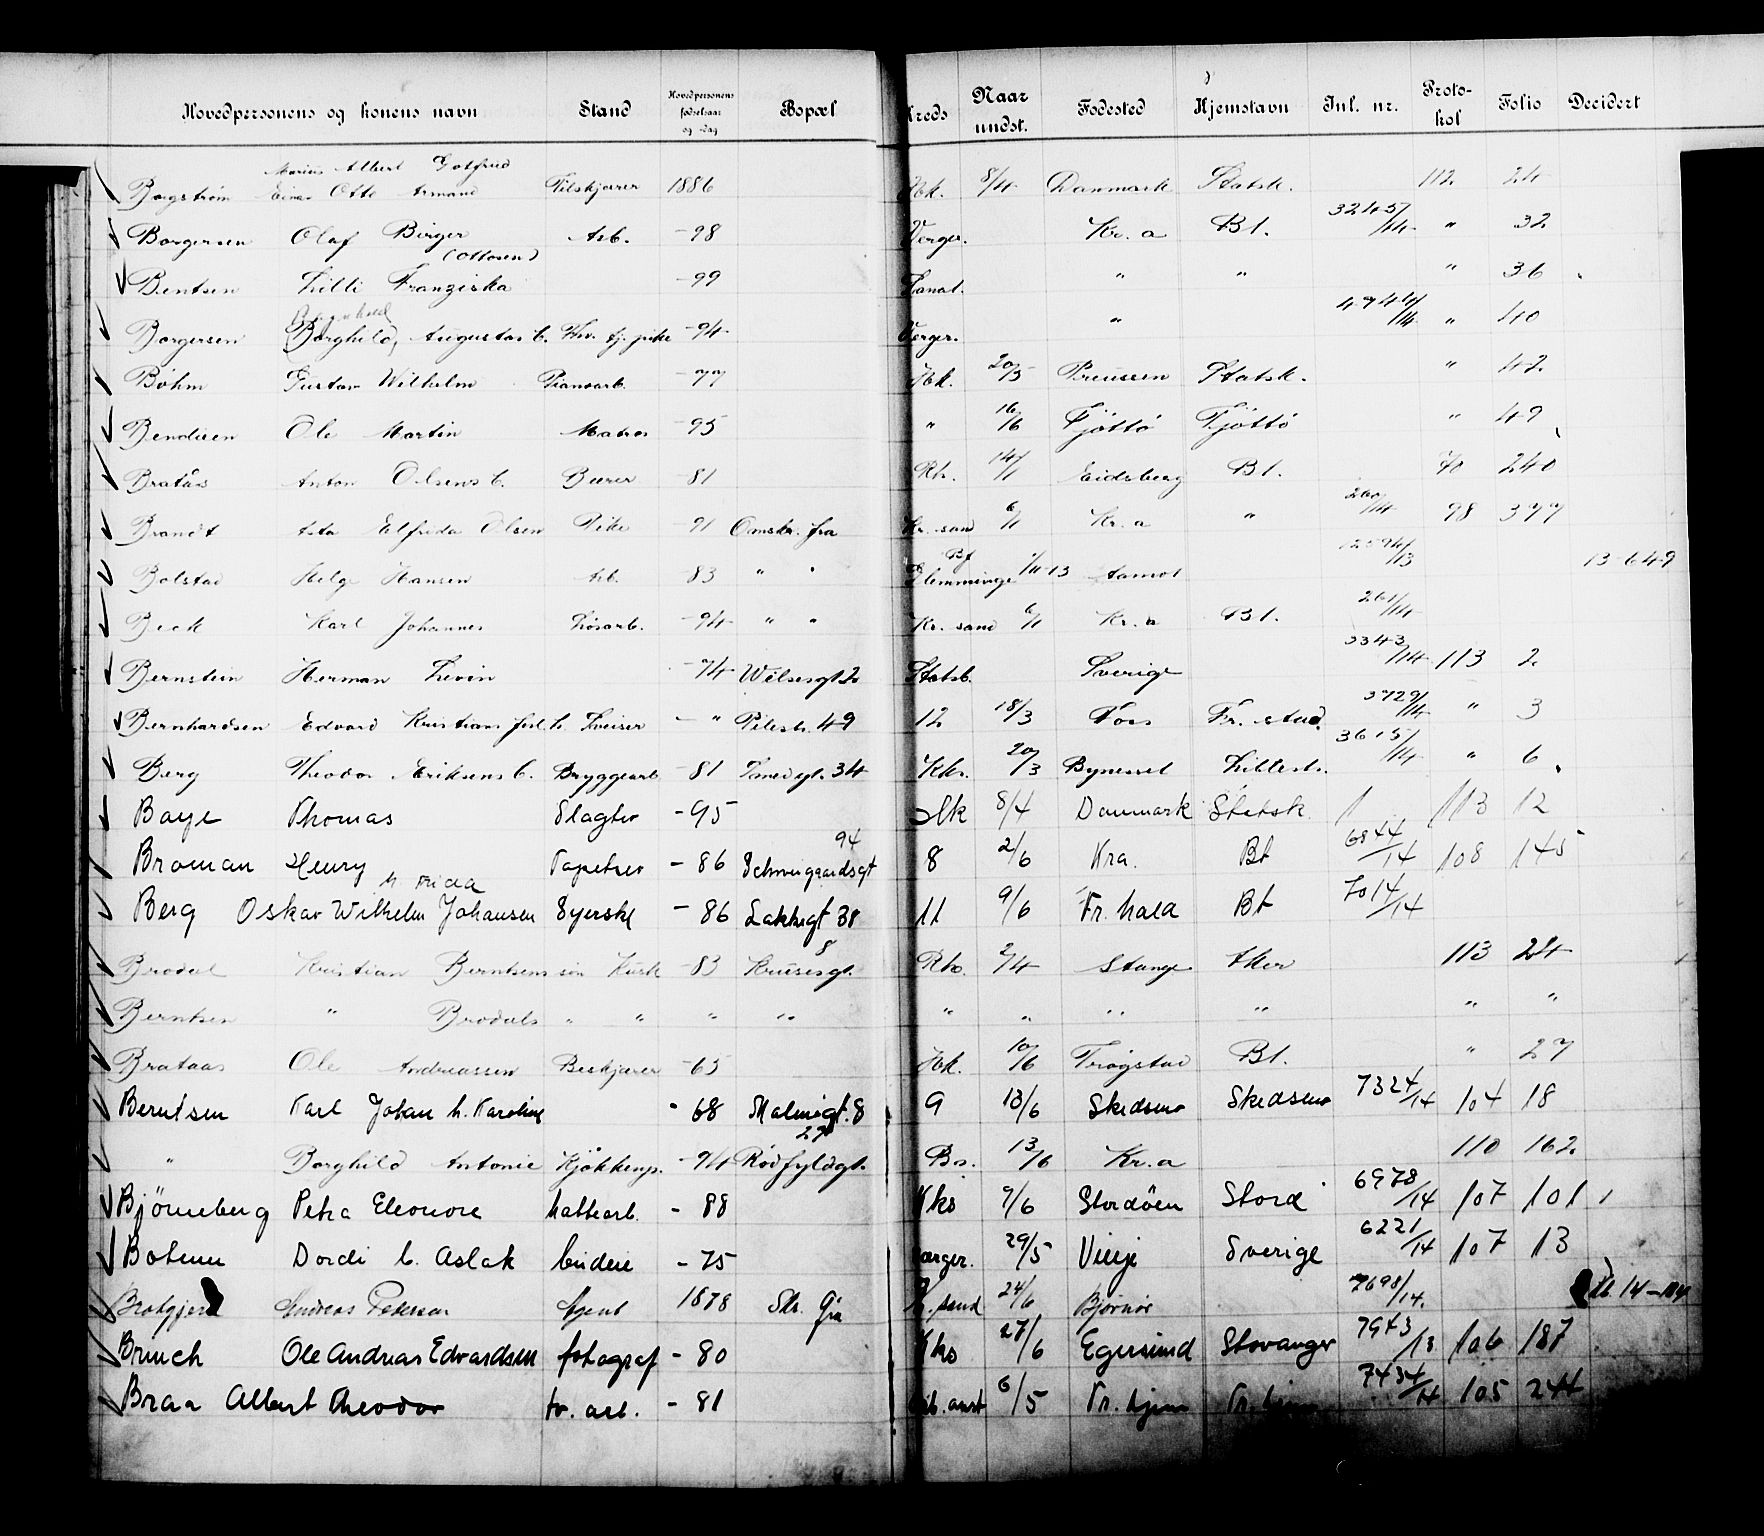 Hovedpersonens og konens navn Stand Hovedpersonens fødselsaar og -dag Bopæl Kreds Naar undst. Fødested Hjemstavn Inl. nr. Proto-kol Folio Decidert
Marius Albert Gotfred
Borgstrøm Einar Otto Armand Pilskjærer 1886 Hk. 8/4 Danmark Statsk. 112 24
Borgersen Olaf Birger Arb. -98 Verger. Kr.a Bt. /14 " 32
(Ottosen)
Bentsen Lilli Franziska -99 Sanat. " " " 36
Ragnhild
Borgersen Borghild, Augustas b. tj. pike -94 Verger. " /14 " 40
Böhm Gustav Wilhelm Pianoarb. -77 Hk. 20/5 Preussen Statsk. " 42
Bendixen Ole Martin Matros -95 " 16/6 Tjøttø Tjøttø " 49
Bratås Anton Olsens b. Bærer -81 Rh. 14/1 Eidsberg Bt. 70 240
Brandt Asta Elfrida Olsen Pike -91 Omskr. fra Kr. sand 6/1 Kr.a " 260/14 98 377
Bolstad Helge Hansen Arb. -83 " " Bf Flemminge 1/11-13 Aamot /13 13-649
Beck Karl Johannes Løsarb. -94 " " Kr. sand 6/1 Kr.a Bt. 261/14
Bernstein Herman Levin -74 Wilsesgt 2 Statsb. Sverige 3343/14 113 2
Bernhardsen Edvard Kristian Sveiser - " Pilestr. 49 12 18/3 Foss Fr. stad. 3729/14 " 3
Berg Theodor Eriksens b. Bryggearb -81 Smedgt. 34 Kks. 20/3 Bynesset Lillestr. 3615/14 " 6
Baye Thomas Slagter -95 Hk 8/4 Danmark Statsk. 113 12
Broman Henry Tapetser -86 Schweigaardsgt 94 8 2/6 Kra. Bt 6844/14 108 145
h Frida
Berg Oskar Wilhelm Johansen Syerske -86 Lakkegt 38 11 9/6 Fr. hald Bt 7014/14
Brodal Kristian Berntsens søn Kusk -83 Krusesgt. 8 Rh. 2/4 Stange Aker 113 24
Berntsen " Brodals " " " " " " " " " "
Brataas Ole Andreassen Beskjærer -65 Hk. 10/6 Trøgstad Bt. " 27
Berntsen Karl Johan h. Karoline -68 Malmøgt. 8 9 13/6 Skedsmo Skedsmo 7324/14 104 18
" Borghild Antonie Kjøkkenp. -94 Rødfyldgt. 27 Bs. 13/6 Kr.a 110 162
Bjørneberg Petra Eleonore hattearb. -88 Kks 9/6 Stordöen Stord 6978/14 107 101
Botnen Dordi b. Aslak budeie -75 Verger. 29/5 Vinje Sverige 6221/14 107 13
Brotgjerd Andreas Petersen Agent 1878 Skr. fra Kr. sand 24/6 Bjørnør 7698/14.
Bruuch Ole Andrias Edvardsen fotograf -80 Kks 27/6 Egersund Stavanger 7943/13 106 187
Braa Albert Theodor tr. arb. -81 arb. anst 6/5 Tr. hjem Tr. hjem 7434/14 105 244